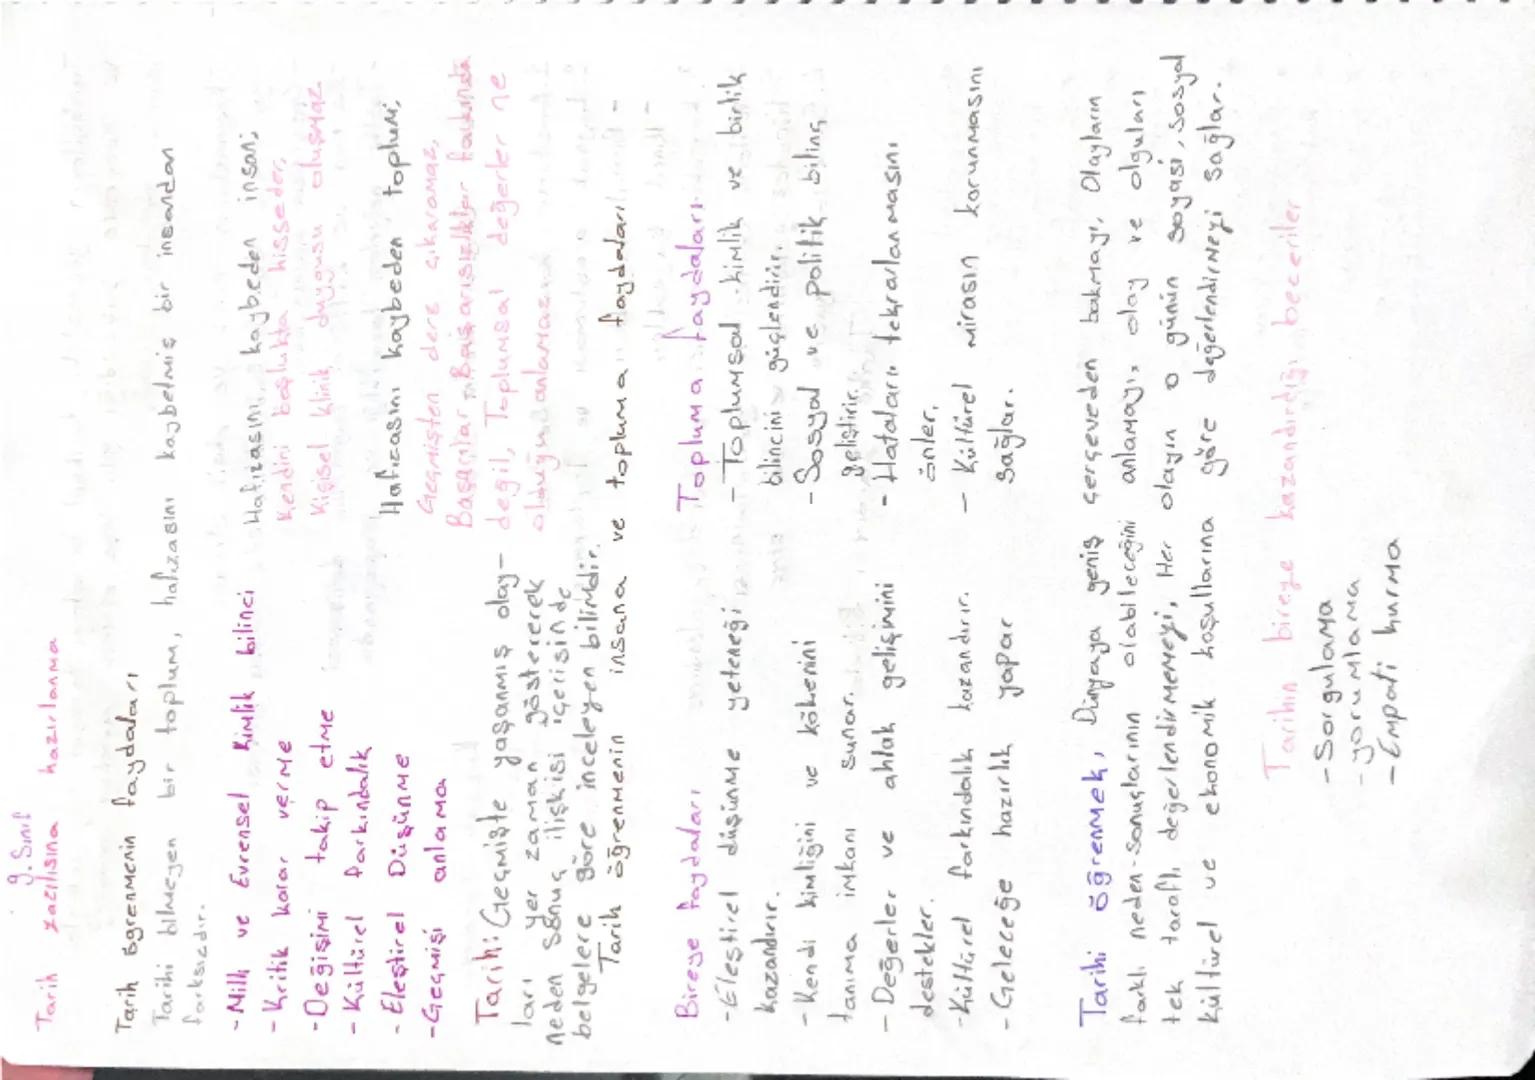 9. Sınıf
Tarih yazılısına hazırlanma
Tarih ögrenmenin faydaları
Tarihi bilmeyen bir toplum, hafızasını kaybetmiş bir insandan
farksızdır.
- Milli ve Evrensel Kimlik bilinci
- Kritik karar verme
- Değişimi takip etme
- Kültürel farkındalık
- Eleştirel Düşünme
- Geçmişi anlama
Hafızasını kaybeden insan;
Kendini boşlukta hisseder,
Kişisel klinik duygusu oluşmaz
Hafızasını kaybeden toplum;
Geçmişten ders çıkaramaz,
Başarılar Başarısızlıklar farkında
değil, Toplumsal değerler ne
olduğu anlamasın
Tarih: Geçmişte yaşanmış olay-
ları yer zaman göstererek
neden sonuç ilişkisi içerisinde
belgelere göre inceleyen bilimdir.
Tarih öğrenmenin insana ve topluma faydaları
Bireye faydaları
- Eleştirel düşünme yeteneği
kazandırır.
- Kendi kimliğini ve kökenini
tanıma imkanı sunar.
- Değerler ve ahlak gelişimini
destekler.
- Kültürel farkındalık kazandırır.
- Geleceğe hazırlık yapar
Topluma faydaları
- Toplumsal kimlik ve birlik
bilincini güçlendirir.
- Sosyal ve politik bilinç
geliştirir.
- Hataların tekrarlanmasını
önler.
- Kültürel mirasın korunmasını
Sağlar.
Tarihi öğrenmek, Dünyaya geniş çerçeveden bakmayı, Olayların
farklı neden-sonuçlarının olabileceğini anlamayı, olay ve olguları
tek taraflı değerlendirmemeyi, Her olayın o günün sayası, sosyal
Kültürel ve ekonomik koşullarına göre değerlendirmeyi sağlar.
Tarihin bireye kazandırdığı beceriler
- Sorgulama
- yorumlama
- Empati kurma